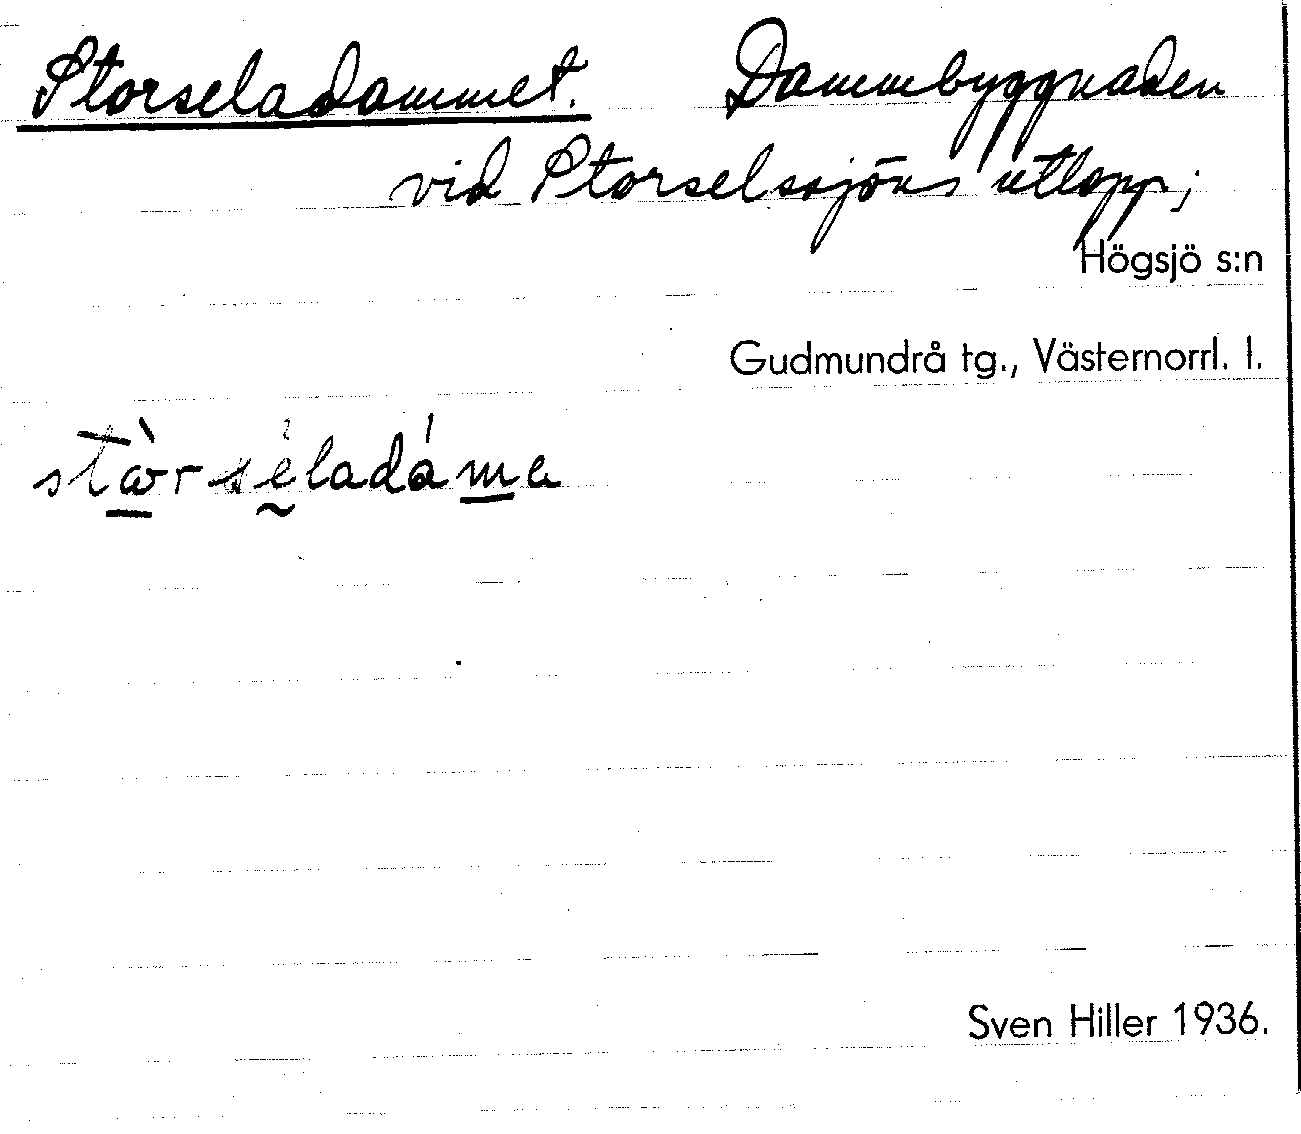 Storseladammet. Dammbyggnaden
vid Storselssjöns utlopp;
Högsjö s:n
Gudmundrå tg., Västernorrl. l.
Sven Hiller 1936.